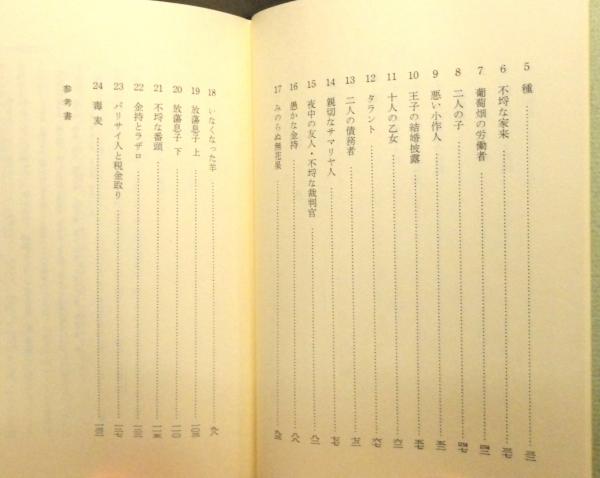 5 種
6 不埒な家来
7 葡萄畑の労働者
8 二人の子
9 悪い小作人
10 王子の結婚披露
11 十人の乙女
12 タラント
13 二人の債務者
14 親切なサマリヤ人
15 夜中の友人・不埒な裁判官
16 愚かな金持
17 みのらぬ無花果
18 いなくなった羊
19 放蕩息子 上
20 放蕩息子 下
21 不埒な番頭
22 金持とラザロ
23 パリサイ人と税金取り
24 毒麦
参考書